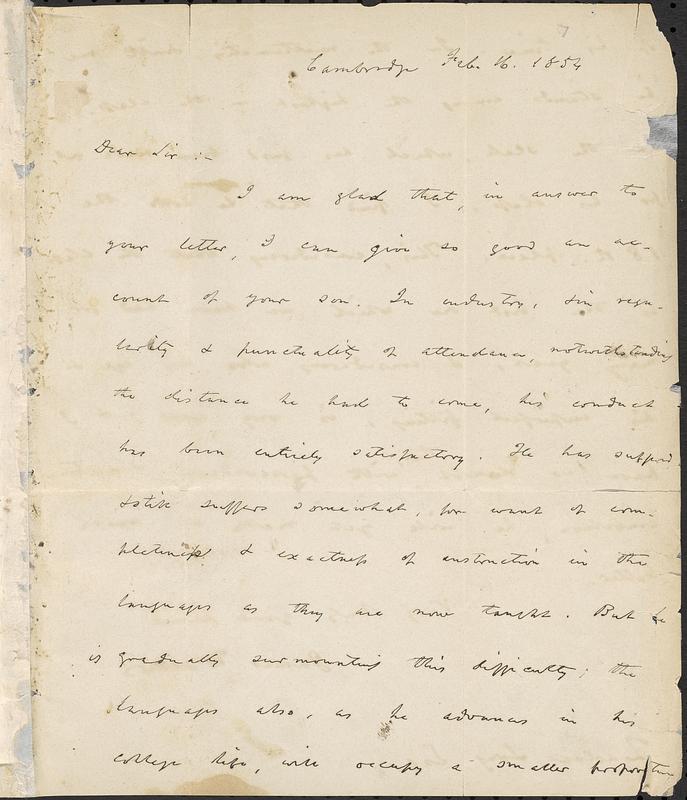 Cambridge Feb. 16. 1854
Dear Sir :-
I am glad that, in answer to
your letter, I can give so good an ac-
count of your son. In industry, & in regu-
larity & punctuality of attendance, notwithstanding
the distance he had to come, his conduct
has been entirely satisfactory. He has suffered
& still suffers somewhat, for want of com-
pleteness & exactness of instruction in the
languages as they are now taught. But he
is gradually surmounting this difficulty; the
languages also, as he advances in his
college life, will occupy a smaller proportion